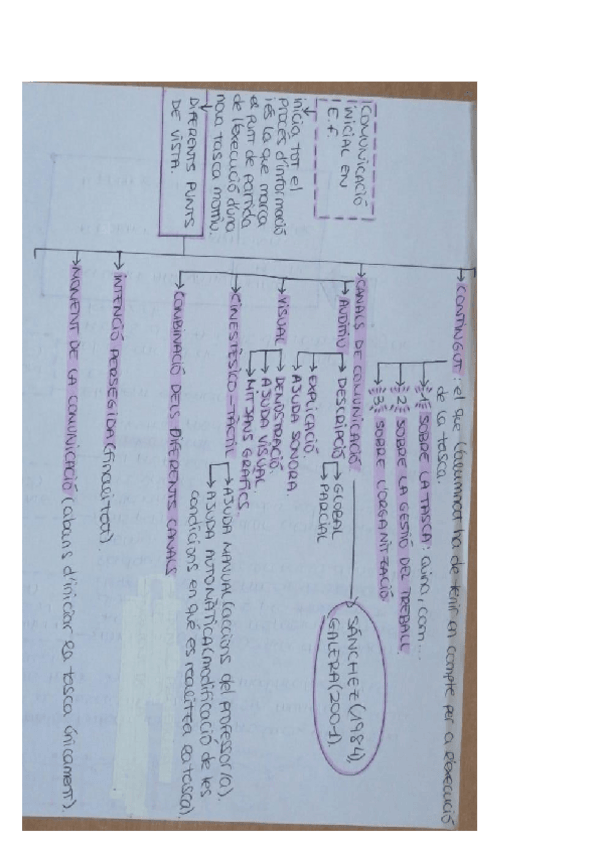 COMUNICACIÓ
INICIAL EN
E.F.
inicia tot el
procés d'informació
i és la que marca
el punt de partida
de l'execució d'una
nova tasca motriu.
DIFERENTS PUNTS
DE VISTA.
CONTINGUT: el que l'alumnat ha de tenir en compte per a l'execució
de la tasca.
1. SOBRE LA TASCA: quina, com...
2. SOBRE LA GESTIÓ DEL TREBALL.
3. SOBRE L'ORGANITZACIÓ
CANALS DE COMUNICACIÓ
SÁNCHEZ (1984),
GALERA (2001).
AUDITIU
DESCRIPCIÓ
GLOBAL
PARCIAL
EXPLICACIÓ.
AJUDA SONORA.
VISUAL
DEMOSTRACIÓ.
AJUDA VISUAL.
MITJANS GRÀFICS
CINESTÈSICO-TÀCTIL
AJUDA MANUAL (accions del professor/a).
AJUDA AUTOMÀTICA (modificació de les
condicions en què es realitza la tasca).
COMBINACIÓ DELS DIFERENTS CANALS
INTENCIÓ PERSEGIDA (finalitat).
MOMENT DE LA COMUNICACIÓ (abans d'iniciar la tasca únicament).